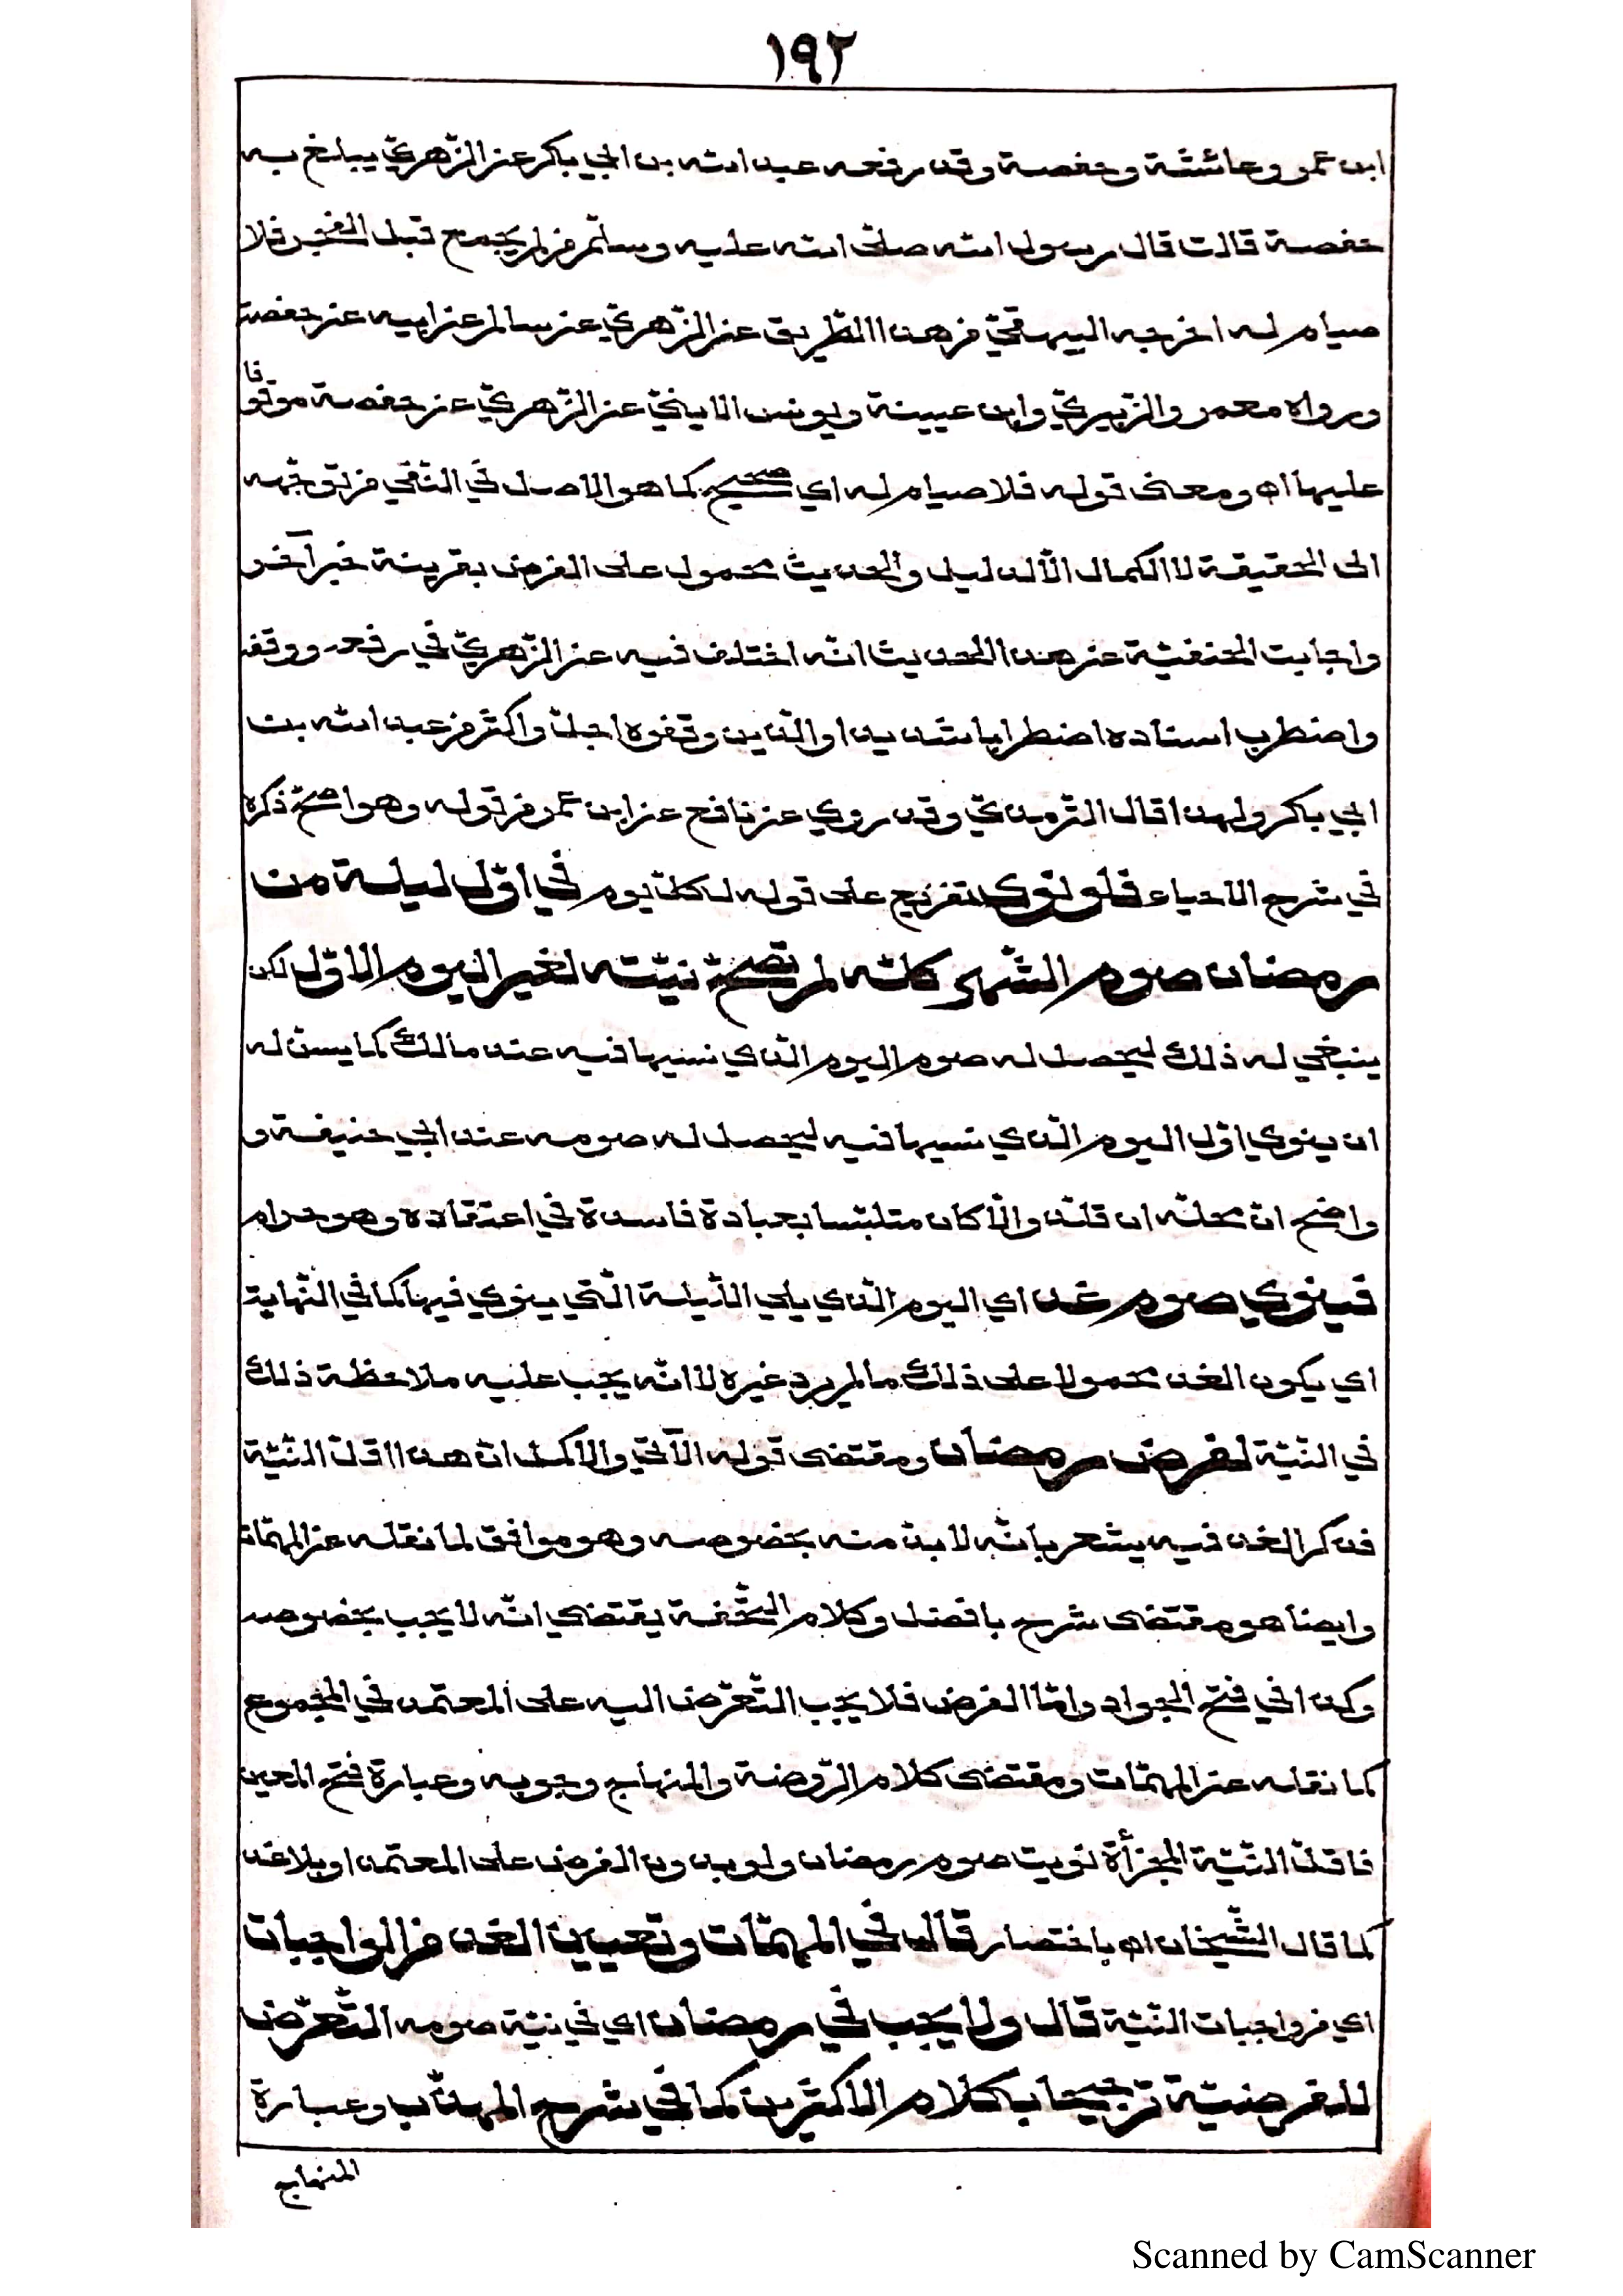 ١٩٢
ابن عمر وعائشة وحفصة وقد رفعه عبد الله بن ابي بكر عن الزّهريّ يبلغ به
حفصة قالت قال رسول الله صلّى الله عليه وسلّم من لم يجمع قبل الفجر فلا
صيام له اخرجه البيهقيّ من هذا الطّريق عن الزّهريّ عن سالم عن ابيه عن حفصة
ورواه معمر والزّبيريّ وابن عيينة ويونس الايليّ عن الزّهريّ عن حفصة موقوفا
عليها اه ومعنى قوله فلا صيام له اي صحيح كما هو الاصل في النّفي من توجّهه
الى الحقيقة لا الكمال الّا لدليل والحديث محمول على الفرض بقرينة خبر آخر
واجابت الحنفيّة عن هذا الحديث انّه اختلف فيه عن الزّهريّ في رفعه ووقفه
واضطرب اسناده اضطرابا شديدا والّذين وقفوه اجلّ واكثر من عبد الله بن
ابي بكر ولهذا قال التّرمذيّ وقد روي عن نافع عن ابن عمر من قوله وهو اصحّ ذكره
في شرح الاحياء فلو نوى تفريع على قوله لكلّ يوم في اوّل ليلة من
رمضان صوم الشّهر كلّه لم تصحّ نيّته لغير اليوم الاوّل لكن
ينبغي له ذلك ليحصل له صوم اليوم الّذي نسيها فيه عند مالك كما يسنّ له
ان ينوي اوّل اليوم الّذي نسيها فيه ليحصل له صومه عند ابي حنيفة و
واضح انّ محلّه ان قلّد والّا كان متلبّسا بعبادة فاسدة في اعتقاده وهو حرام
فينوي صوم غد اي اليوم الّذي يلي اللّيلة الّتي ينوي فيها كما في النّهاية
اي يكون الغد محمولا على ذلك ما لم يرد غيره لا انّه يجب عليه ملاحظة ذلك
في النّيّة لفرض رمضان ومقتضى قوله الآتي والاكمل انّ هذا اقلّ النّيّة
فذكر الغد فيه يشعر بانّه لا بدّ منه بخصوصه وهو موافق لما نقله عن المهمّات
وايضا هو مقتضى شرح بافضل وكلام التّحفة يقتضي انّه لا يجب بخصوصه
وكذا في فتح الجواد وامّا الفرض فلا يجب التّعرّض اليه على المعتمد في المجموع
كما نقله عن المهمّات ومقتضى كلام الرّوضة والمنهاج وجوبه وعبارة فتح المعين
فاقلّ النّيّة المجزأة نويت صوم رمضان ولو بدون الفرض على المعتمد او بلا غد
كما قال الشّيخان اه باختصار قال في المهمّات وتعيين الغد من الواجبات
اي من واجبات النّيّة قال ولا يجب في رمضان اي في نيّة صومه التّعرّض
للفرضيّة ترجيحا بكلام الاكثرين كما في شرح المهذّب وعبارة
المنهاج
Scanned by CamScanner